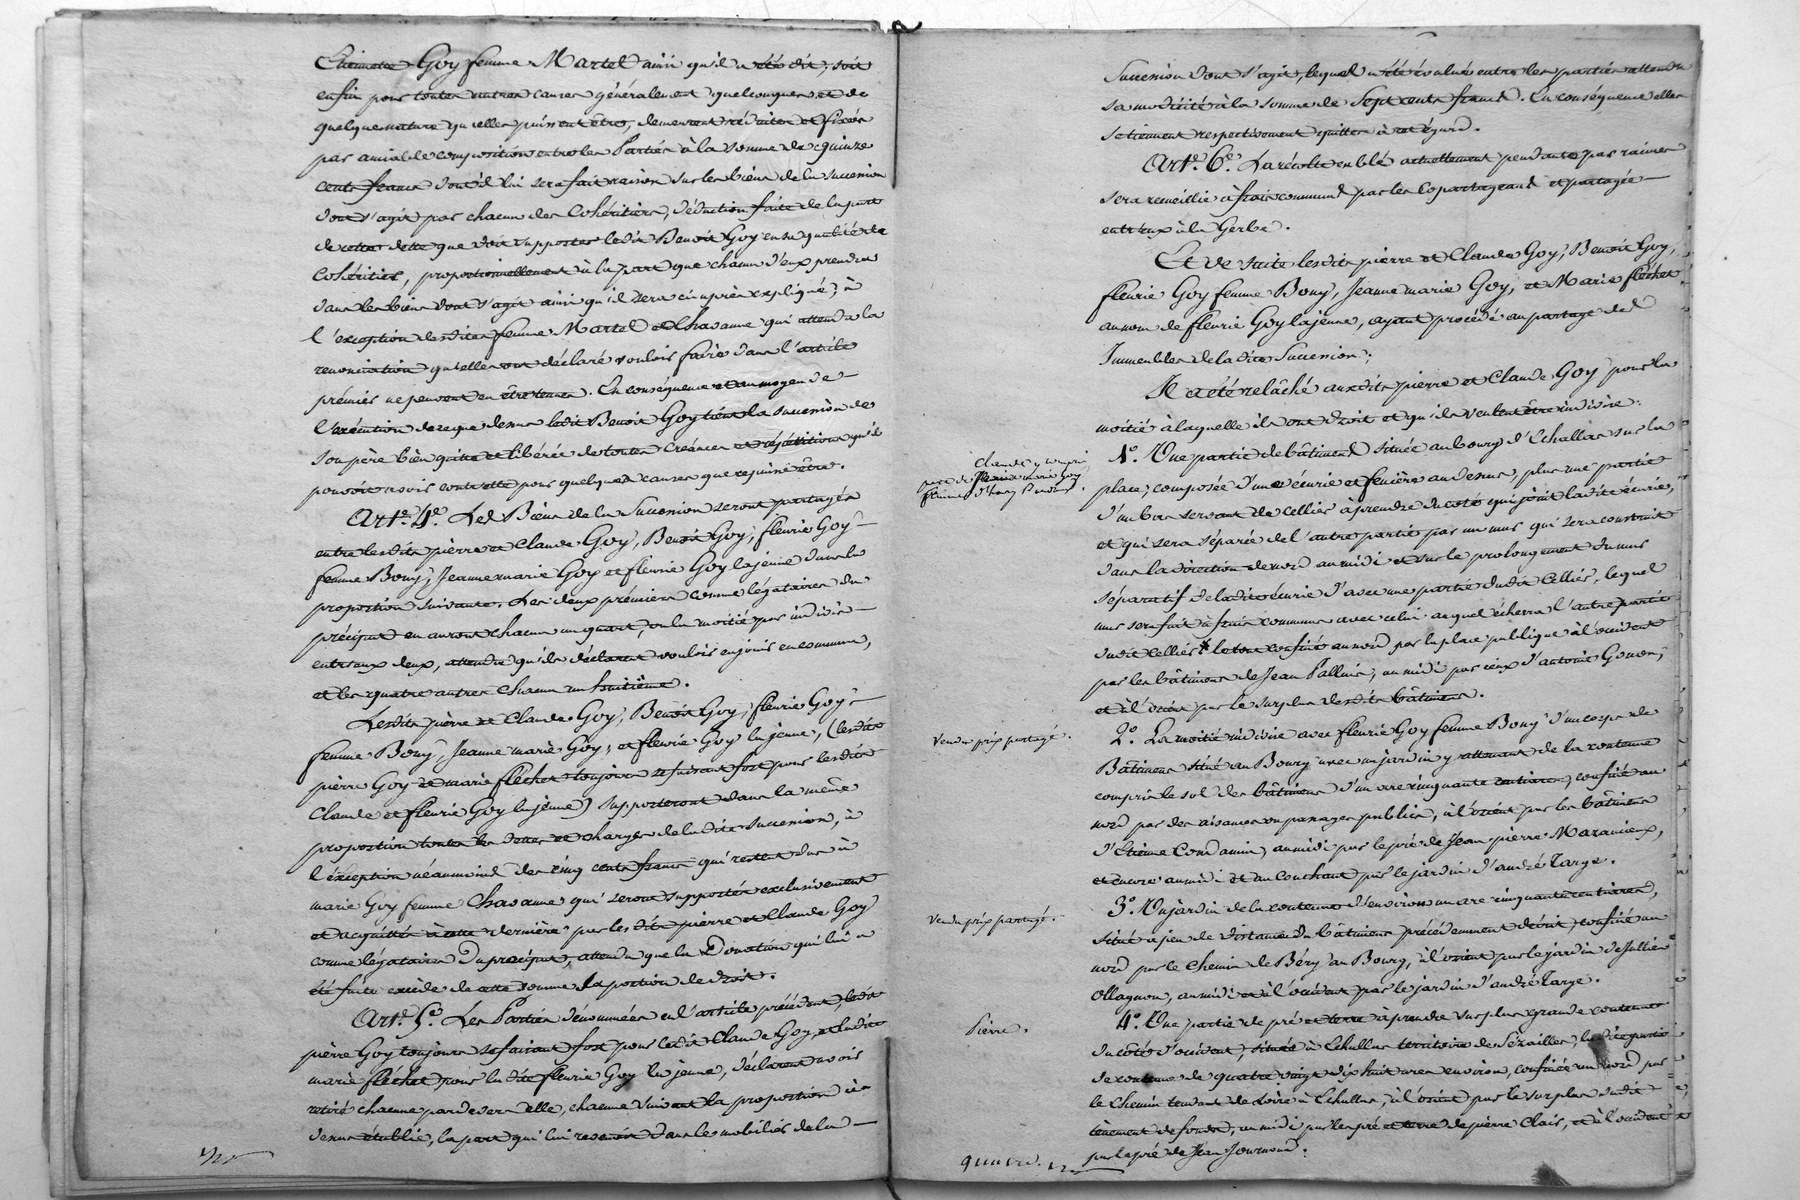 Etiennette Goy femme Martel ainsi qu'il a été dit, soit
enfin pour toutes autres causes généralement quelconques et de
quelque nature qu'elles puissent être, demeurent réduites et fixées
par amiable composition entre les Parties à la somme de quinze
cents francs dont il lui sera fait raison sur les biens de la succession
dont s'agit par chacun des Cohéritiers, déduction faite de la part
de cette dette que doit supporter ledit Benoit Goy en sa qualité de
Cohéritier, proportionnellement à la part que chacun d'eux prendra
dans les biens dont s'agit ainsi qu'il sera ci après expliqué; à
l'exception desdites femme Martel et Chavanne qui attendu la
renonciation qu'elles ont déclaré vouloir faire dans l'article
prémier ne peuvent en être tenues. En conséquence et au moyen de
l'exécution de ce que dessus ledit Benoit Goy tient la succession de
son père bien quitte et libérée de toutes créances et répétitions qu'il
pouvoit avoir contr'elle pour quelques causes que ce puisse être.
Art.e 4.e Les Biens de la Succession seront partagés
entre lesdits pierre et Claude Goy, Benoit Goy, fleurie Goy
femme Bony, Jeanne marie Goy et fleurie Goy la jeune dans la
proportion suivante. Les deux prémiers comme légataires du
préciput en auront chacun un quart, ou la moitié par indivis
entr'eux deux, attendu qu'ils déclarent vouloir en jouir en commun,
et les quatre autres chacun un huitième.
Lesdits pierre et Claude Goy, Benoit Goy, fleurie Goy
femme Bony, Jeanne marie Goy, et fleurie Goy la jeune, (lesdits
pierre Goy et marie fléchet toujours se faisant fort pour lesdits
Claude et fleurie Goy la jeune) supporteront dans la même
proportion toutes les dettes et charges de ladite succession, à
l'éxception néanmoins des cinq cents francs qui restent dus à
marie Goy femme Chavanne qui seront supportés exclusivement
et acquittés à cette dernière par lesdits pierre et Claude Goy
comme légataires du préciput, attendu que la Donation qui lui a
été faite excède de cette somme la portion de droit.
Art.e 5.e Les Parties dénommées en l'article précédent, ledit
pierre Goy toujours se faisant fort pour ledit Claude Goy, et ladite
marie fléchet pour la dite fleurie Goy la jeune, déclarent avoir
retiré chacune pardevers elle, chacune suivant la proportion ci
dessus établie, la part qui lui revenoit dans le mobilier de la
Succession dont s'agit, lequel a été évalué entre les parties attendu
sa modicité à la somme de Sept cents francs. En conséquence elles
se tiennent respectivement quittes à cet égard.
Art.e 6.e La récolte en blé actuellement pendante par racines
sera recueillie à frais communs par les Copartageants et partagée
entr'eux à la Gerbe.
Et de suite lesdits pierre et Claude Goy, Benoit Goy,
fleurie Goy femme Bony, Jeanne marie Goy, et Marie fléchet
au nom de fleurie Goy la jeune, ayant procédé au partage des
Immeubles de la dite Succession;
Il a été relâché auxdits pierre et Claude Goy pour la
moitié à laquelle ils ont droit et qu'ils veulent être indivise:
1.° Une partie de bâtiment située au bourg d'Echallas sur la
place, composée d'une écurie et fenière au dessus, plus une partie
d'un bas servant de cellier à prendre du coté qui joint ladite écurie,
et qui sera séparée de l'autre partie par un mur qui sera construit
dans la direction de nord au midi et sur le prolongement du mur
séparatif de ladite écurie d'avec une partie dudit Cellier, lequel
mur sera fait à frais communs avec celui auquel écherra l'autre partie
dudit cellier * le tout confiné au nord, par la place publique à l'occident
par les bâtimens de Jean Pallui, au midi par ceux d'antoine Gonon,
et à l'orient par le surplus desdits bâtimens.
Vendu prix partagé.
2.° La moitié indivise avec fleurie Goy femme Bony d'un corps de
Bâtimens situé au Bourg avec un jardin y attenant de la contenue
compris le sol des bâtimens d'un are cinquante centiares, confiné au
nord par des aisances ou passages publics, à l'orient par les bâtimens
d'Etienne Condamin, au midi par le pré de Jean pierre Maranieux,
et encore au midi et au couchant par le jardin d'andré Targe.
Vendu prix partagé.
3.° Un jardin de la contenue d'environ un are cinquante centiares,
situé à peu de distance du bâtiment précédemment décrit, confiné au
nord par le chemin de Béry au Bourg, à l'orient par le jardin de Jullien
Ollagnon, au midi et à l'occident par le jardin d'andré Targe.
Pierre.
4.° Une partie de pré et terre à prendre sur plus grande contenue
du côté d'occident, située à Echallas territoire de Sézailles, ladite partie
de contenue de quatre vingt dix huit ares environ, confinée au nord par
le chemin tendant de Loire à Echallas, à l'orient par le surplus dudit
tènement de fonds, au midi par les pré et terre de pierre Clair, et à l'occident
par le pré de Jean Journoud.